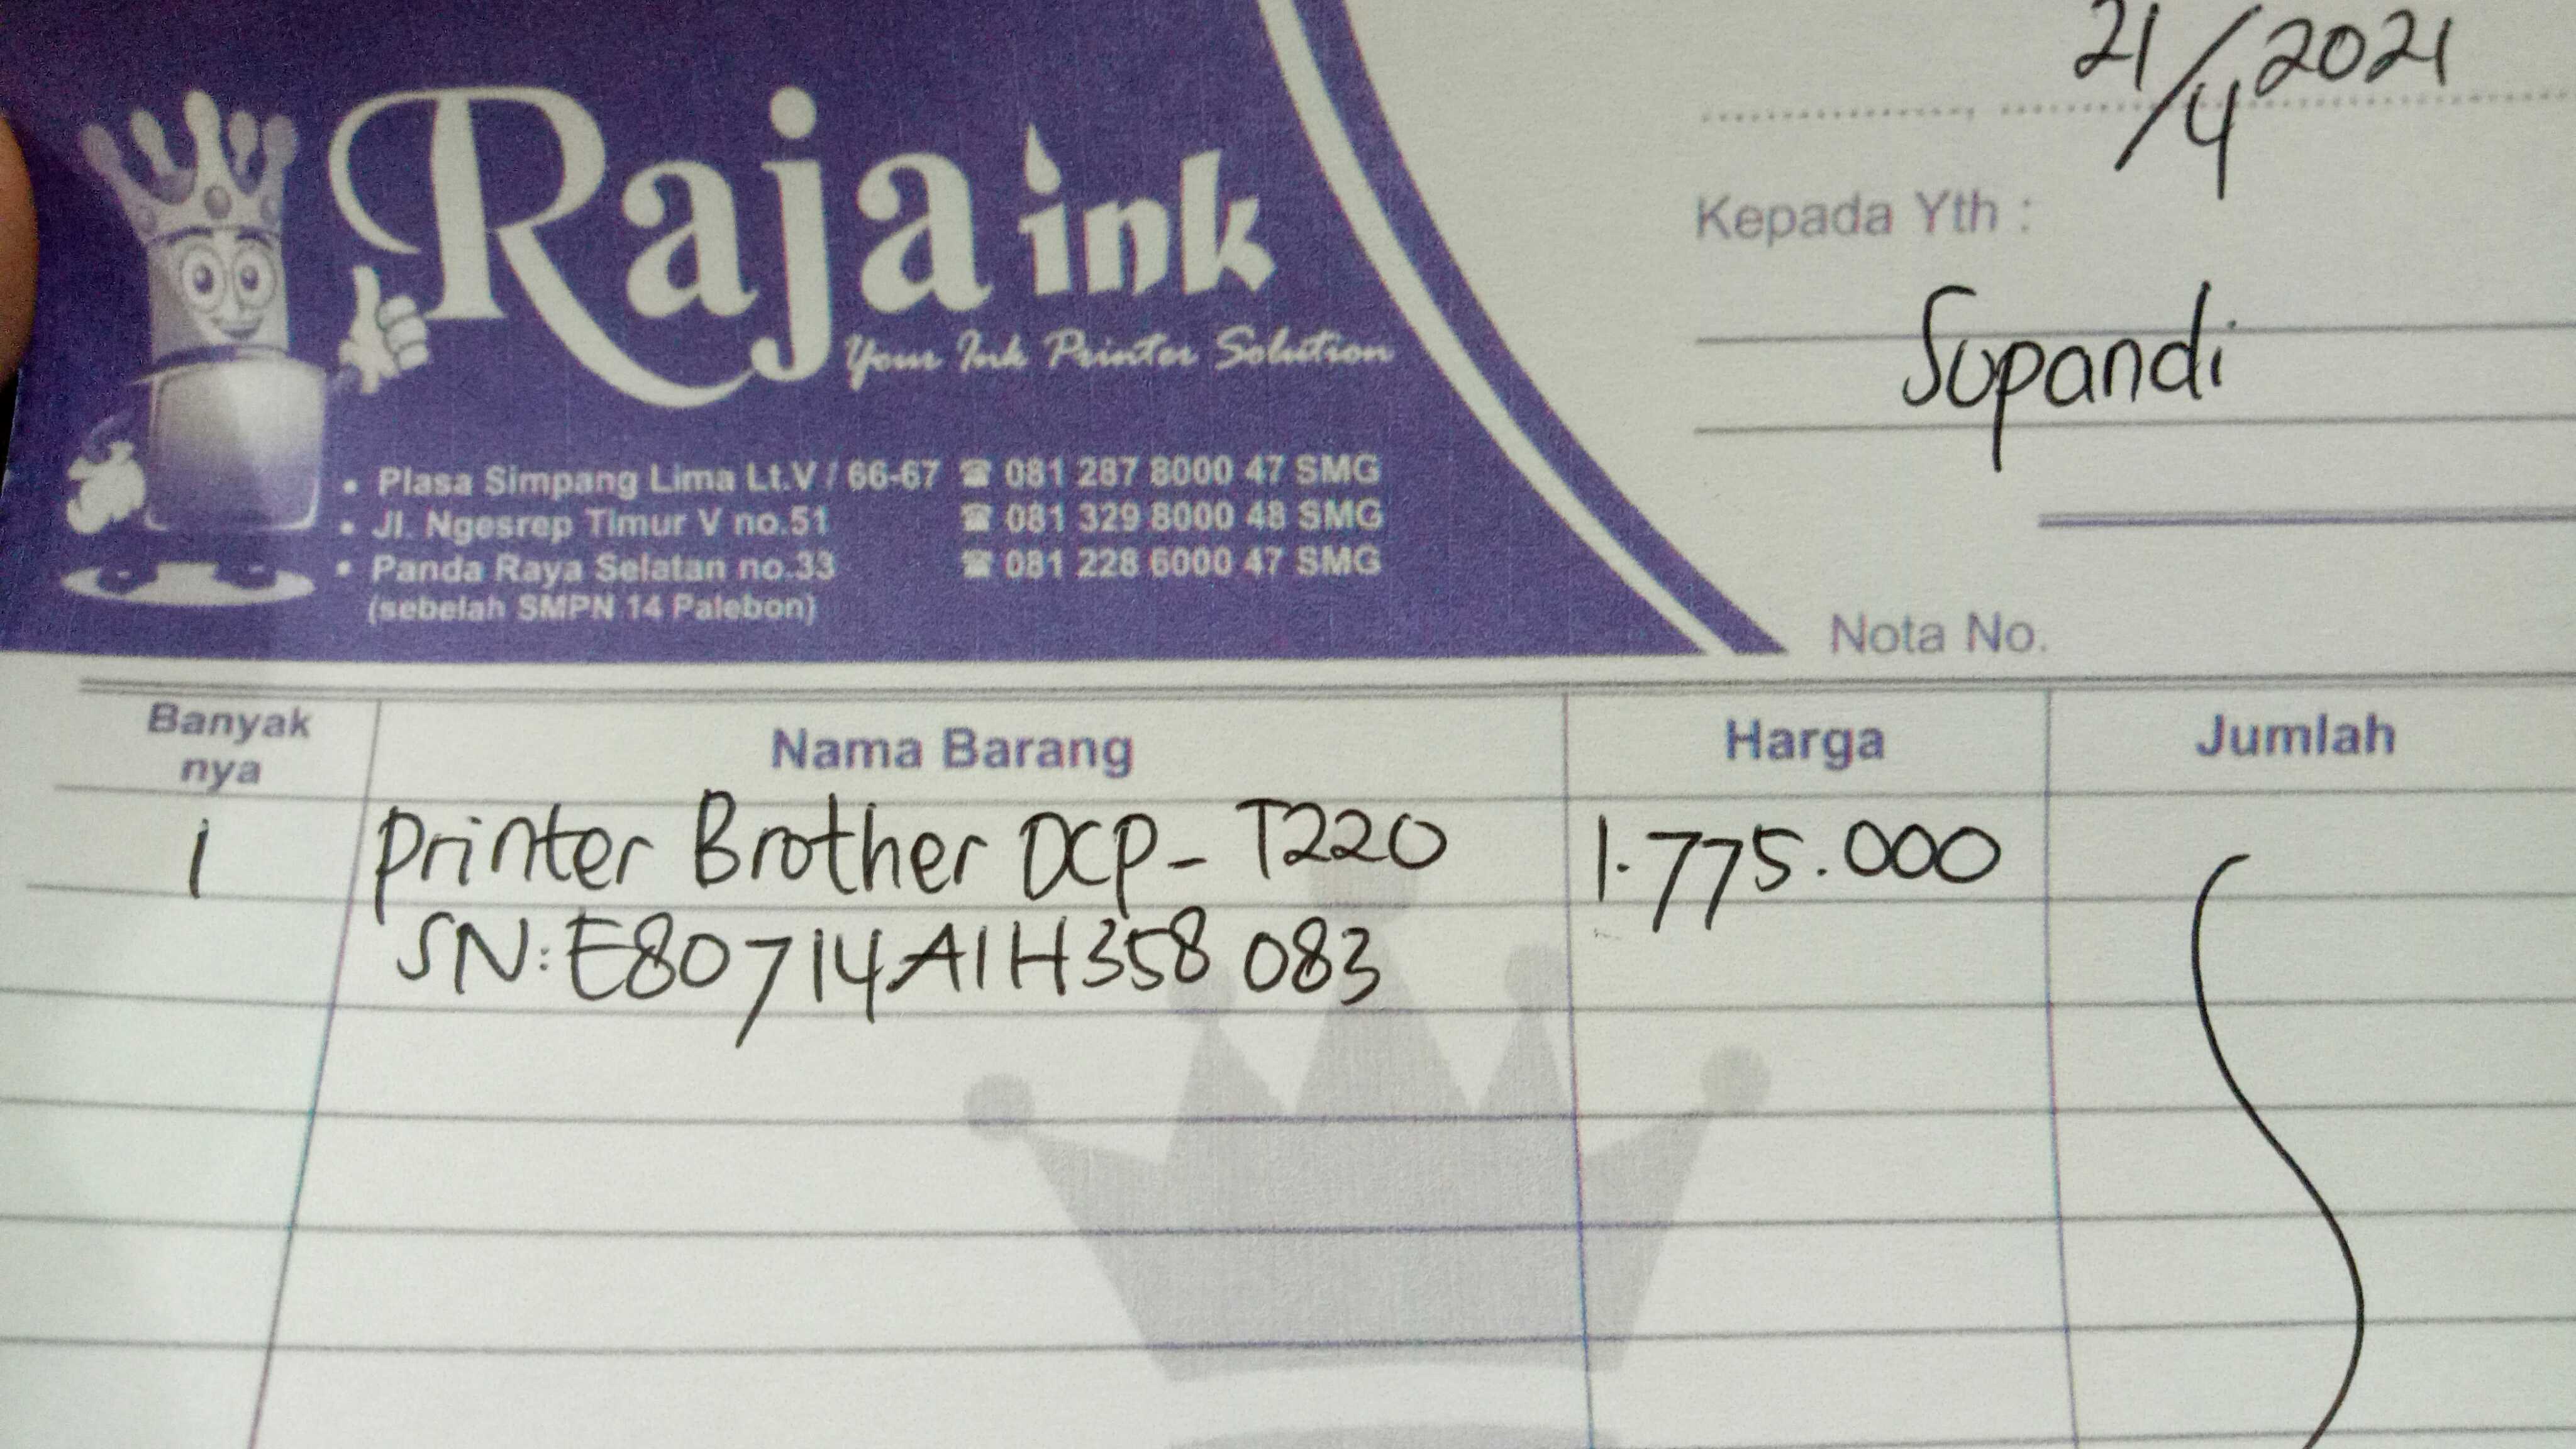 21/4 2021
Raja ink
Your Ink Printer Solution
• Plasa Simpang Lima Lt.V / 66-67 ☎ 081 287 8000 47 SMG
• Jl. Ngesrep Timur V no.51 ☎ 081 329 8000 48 SMG
• Panda Raya Selatan no.33 ☎ 081 228 6000 47 SMG
(sebelah SMPN 14 Palebon)
Kepada Yth :
Supandi
Nota No.
Banyak nya Nama Barang Harga Jumlah
1 Printer Brother DCP-T220 1.775.000
SN:E80714A1H358083